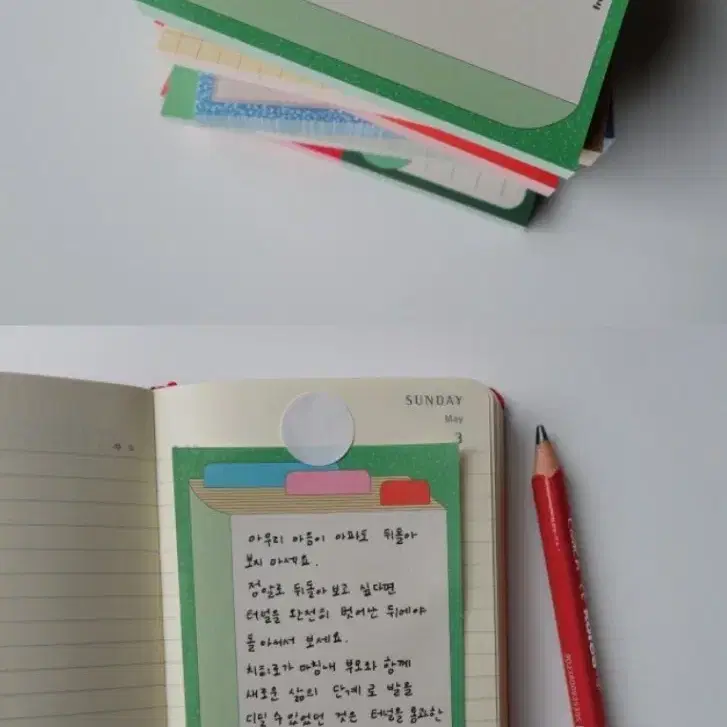 SUNDAY
May
3
아무리 마음이 아파도 뒤돌아
보지 마세요.
정말로 뒤돌아 보고 싶다면
터널을 완전히 벗어난 뒤에야
돌아서서 보세요.
치히로가 마침내 부모와 함께
새로운 삶의 단계로 발을
디딜 수 있었던 것은 터널을 통과한